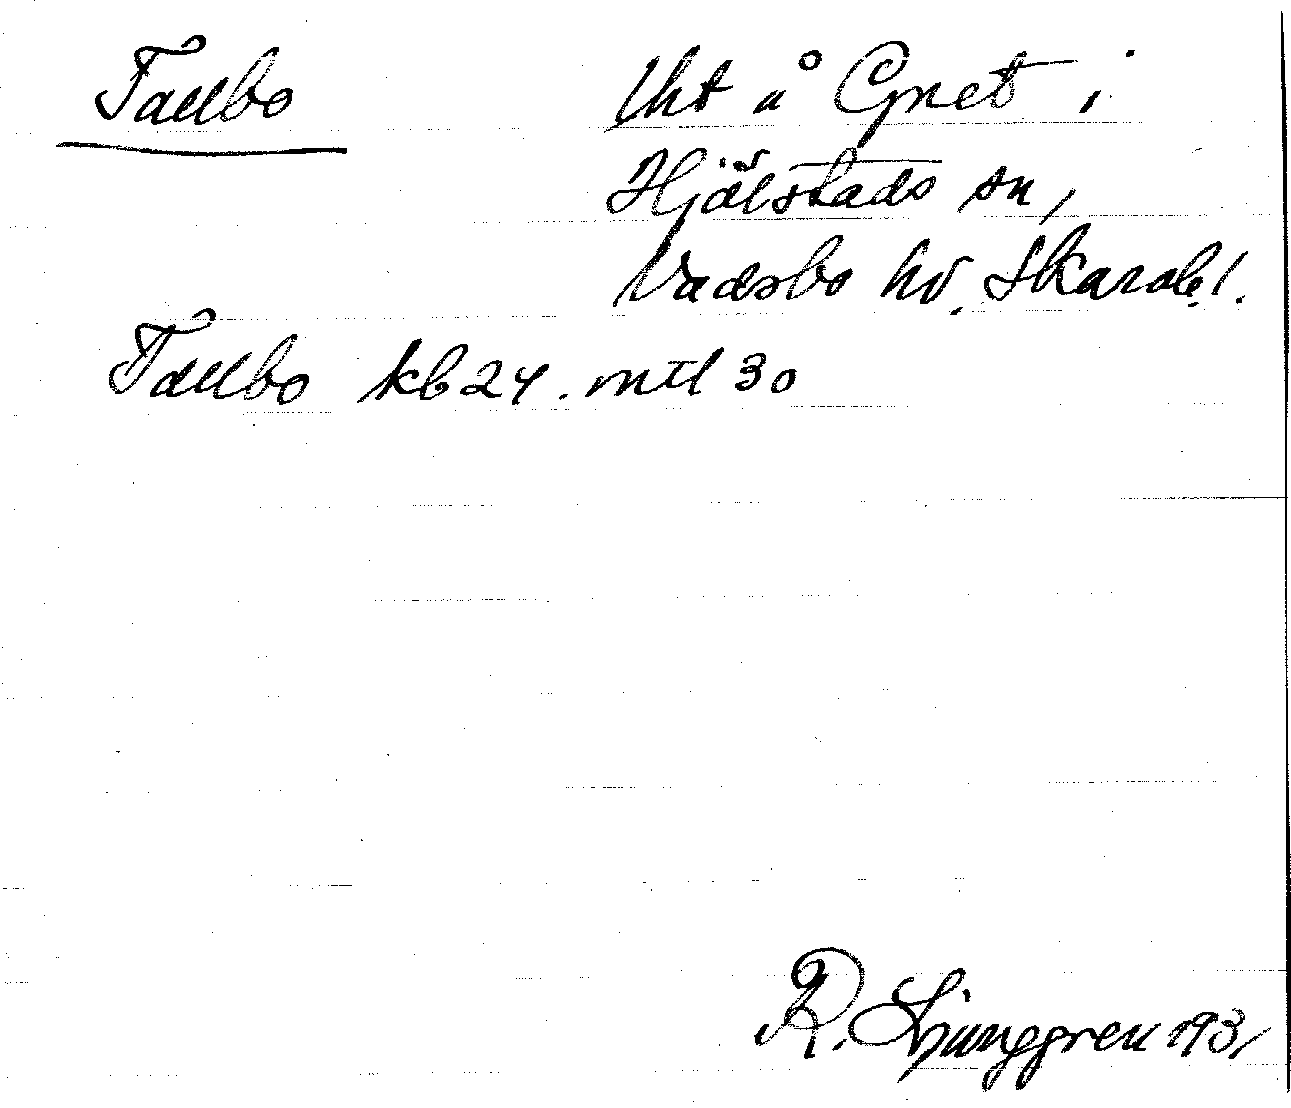 Tallbo
Lht å Gnet i
Hjälstads sn,
Vadsbo hd. Skarab.l.
Tallbo kb 24. mtl 30
R. Ljunggren 1931